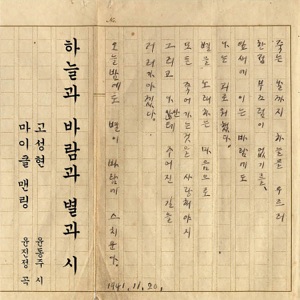 죽는 날까지 하늘을 우르러
한점 부끄럼이 없기를,
잎새에 이는 바람에도
나는 괴로워했다.
별을 노래하는 마음으로
모든 죽어가는것을 사랑해야지
그리고 나안테 주어진 길을
거러가야겠다.
오늘밤에도 별이 바람에 스치운다.
1941.11.20.
하늘과 바람과 별과 시
고성현
마이클 맨링
윤동주 시
윤진정 곡